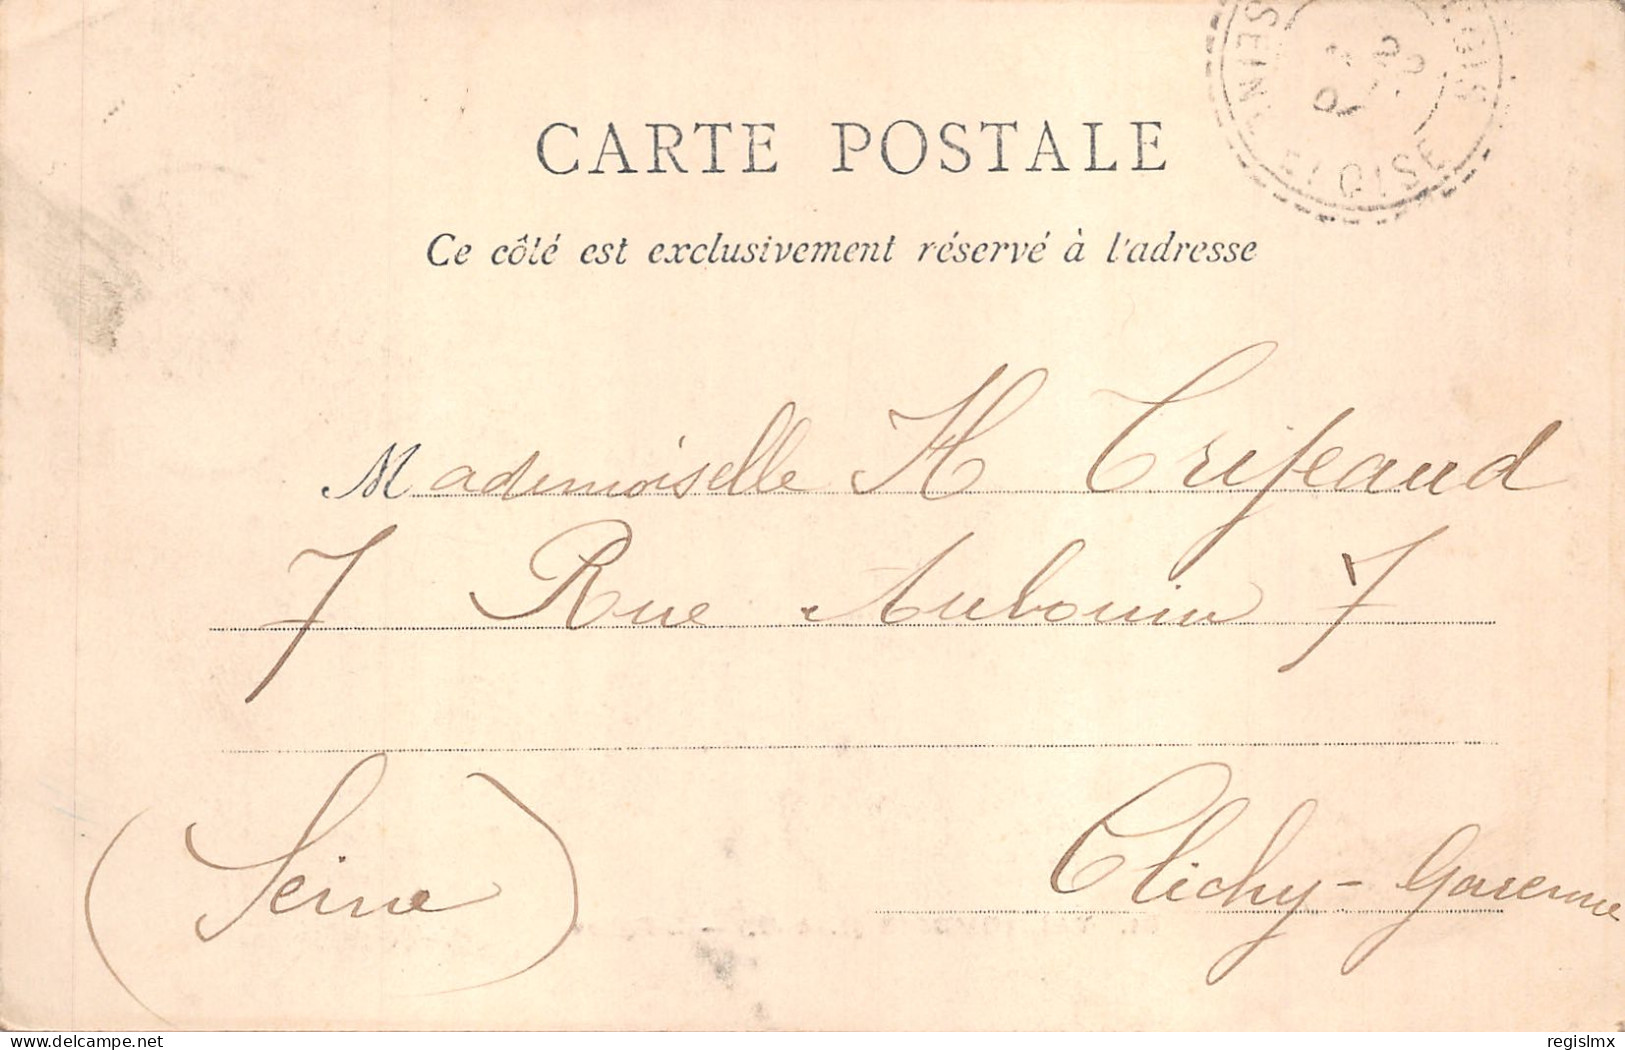 SEINE
ET OISE
CARTE POSTALE
Ce côté est exclusivement réservé à l'adresse
Mademoiselle H Trifeaud
7 Rue Aubouin 7
(Seine) Clichy-Garenne
delcampe.net
regislmx